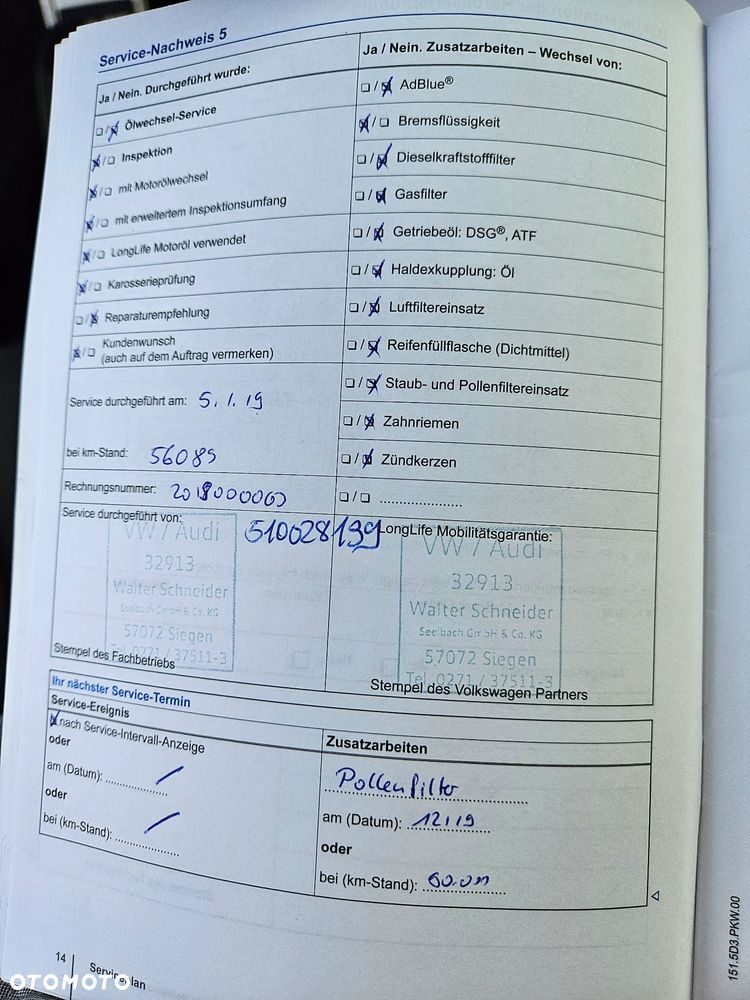 Service-Nachweis 5
Ja / Nein. Durchgeführt wurde:
☐/☒ Ölwechsel-Service
☒/☐ Inspektion
☒/☐ mit Motorölwechsel
☒/☐ mit erweitertem Inspektionsumfang
☒/☐ LongLife Motoröl verwendet
☒/☐ Karosserieprüfung
☐/☒ Reparaturempfehlung
☒/☐ Kundenwunsch
(auch auf dem Auftrag vermerken)
Service durchgeführt am: 5.1.19
bei km-Stand: 56089
Rechnungsnummer:
Service durchgeführt von: 510028139
VW / Audi
32913
Walter Schneider
Seelbach GmbH & Co. KG
57072 Siegen
Tel. 0271 / 37511-3
Stempel des Fachbetriebs
Ja / Nein. Zusatzarbeiten – Wechsel von:
☐/☒ AdBlue®
☒/☐ Bremsflüssigkeit
☐/☒ Dieselkraftstofffilter
☐/☒ Gasfilter
☐/☒ Getriebeöl: DSG®, ATF
☐/☒ Haldexkupplung: Öl
☐/☒ Luftfiltereinsatz
☐/☒ Reifenfüllflasche (Dichtmittel)
☐/☒ Staub- und Pollenfiltereinsatz
☐/☒ Zahnriemen
☐/☒ Zündkerzen
☐/☐ ......................
LongLife Mobilitätsgarantie:
VW / Audi
32913
Walter Schneider
Seelbach GmbH & Co. KG
57072 Siegen
Tel. 0271 / 37511-3
Stempel des Volkswagen Partners
Ihr nächster Service-Termin
Service-Ereignis
☒ nach Service-Intervall-Anzeige
oder
am (Datum): /
oder
bei (km-Stand): /
Zusatzarbeiten
Pollenfilter
am (Datum): 12/19
oder
bei (km-Stand):
14
Serviceplan
151.5D3.PKW.00
OTOMOTO